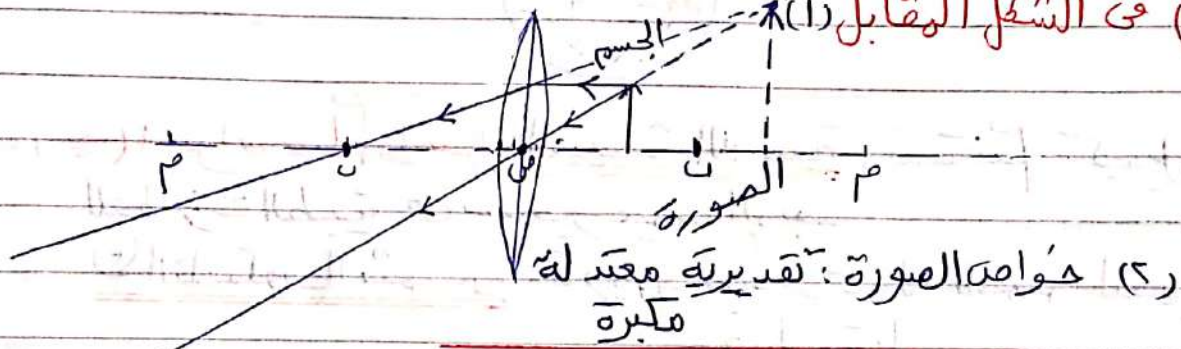 ) فى الشكل المقابل (١)
الجسم
م ن م ن م
الصورة
(٢) خواص الصورة : تقديرية معتدلة
مكبرة